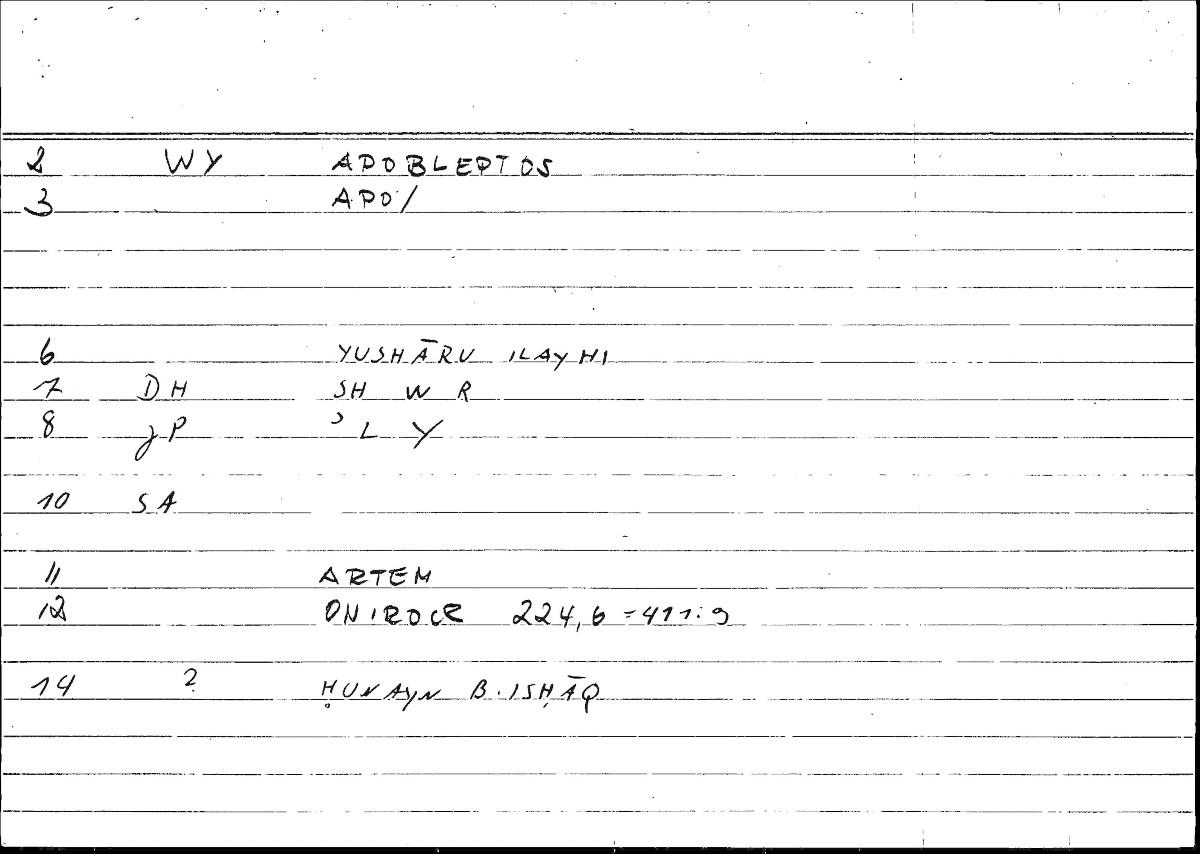 2 WY APOBLEPTOS
3 APO/
6 YUSHĀRU ILAYHI
7 DH SH W R
8 JP ʾ L Y
10 SA
11 ARTEM
12 ONIROCR 224,6 = 411:9
14 ? ḤUNAYN B. ISḤĀQ